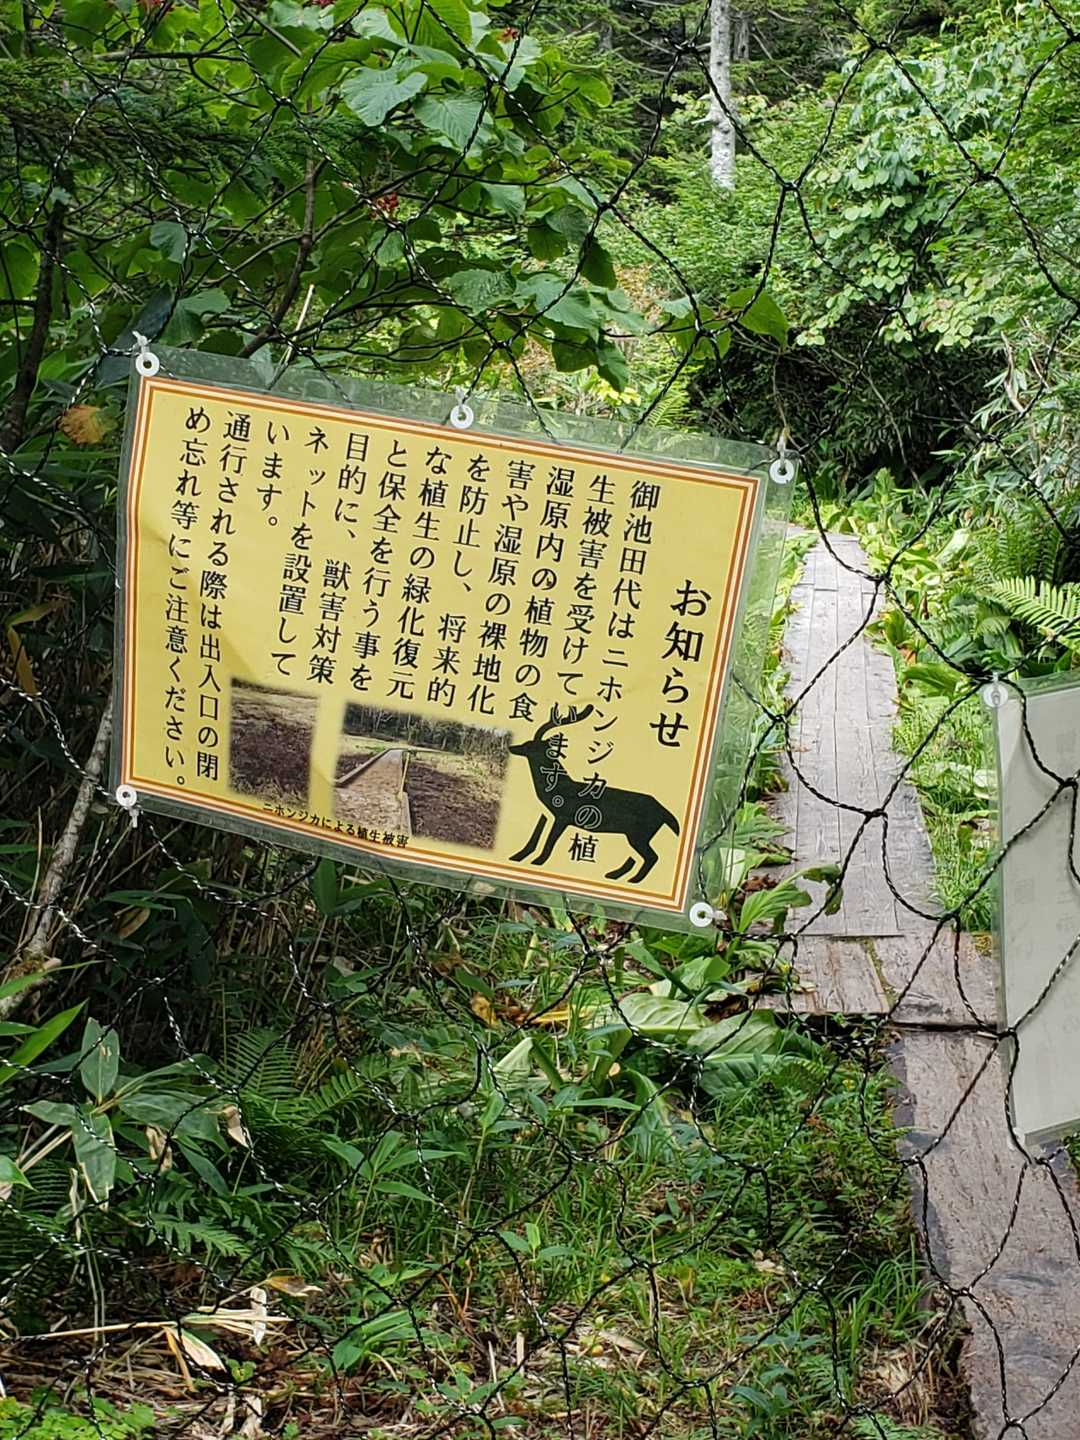 お知らせ
御池田代はニホンジカの植
生被害を受けています。
湿原内の植物の食
害や湿原の裸地化
を防止し、将来的
な植生の緑化復元
と保全を行う事を
目的に、獣害対策
ネットを設置して
います。
通行される際は出入口の閉
め忘れ等にご注意ください。
ニホンジカによる植生被害